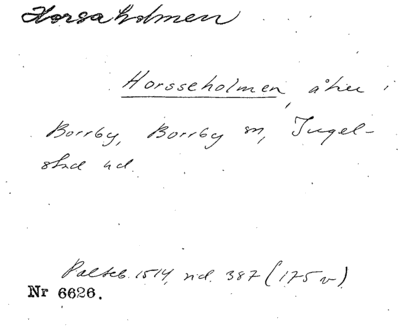 Horsaholmen
Horsseholmen, åker i
Borrby, Borrby sn, Ingel-
stad hd.
Palteb. 1514, sid. 387 (175 v)
Nr 6626.